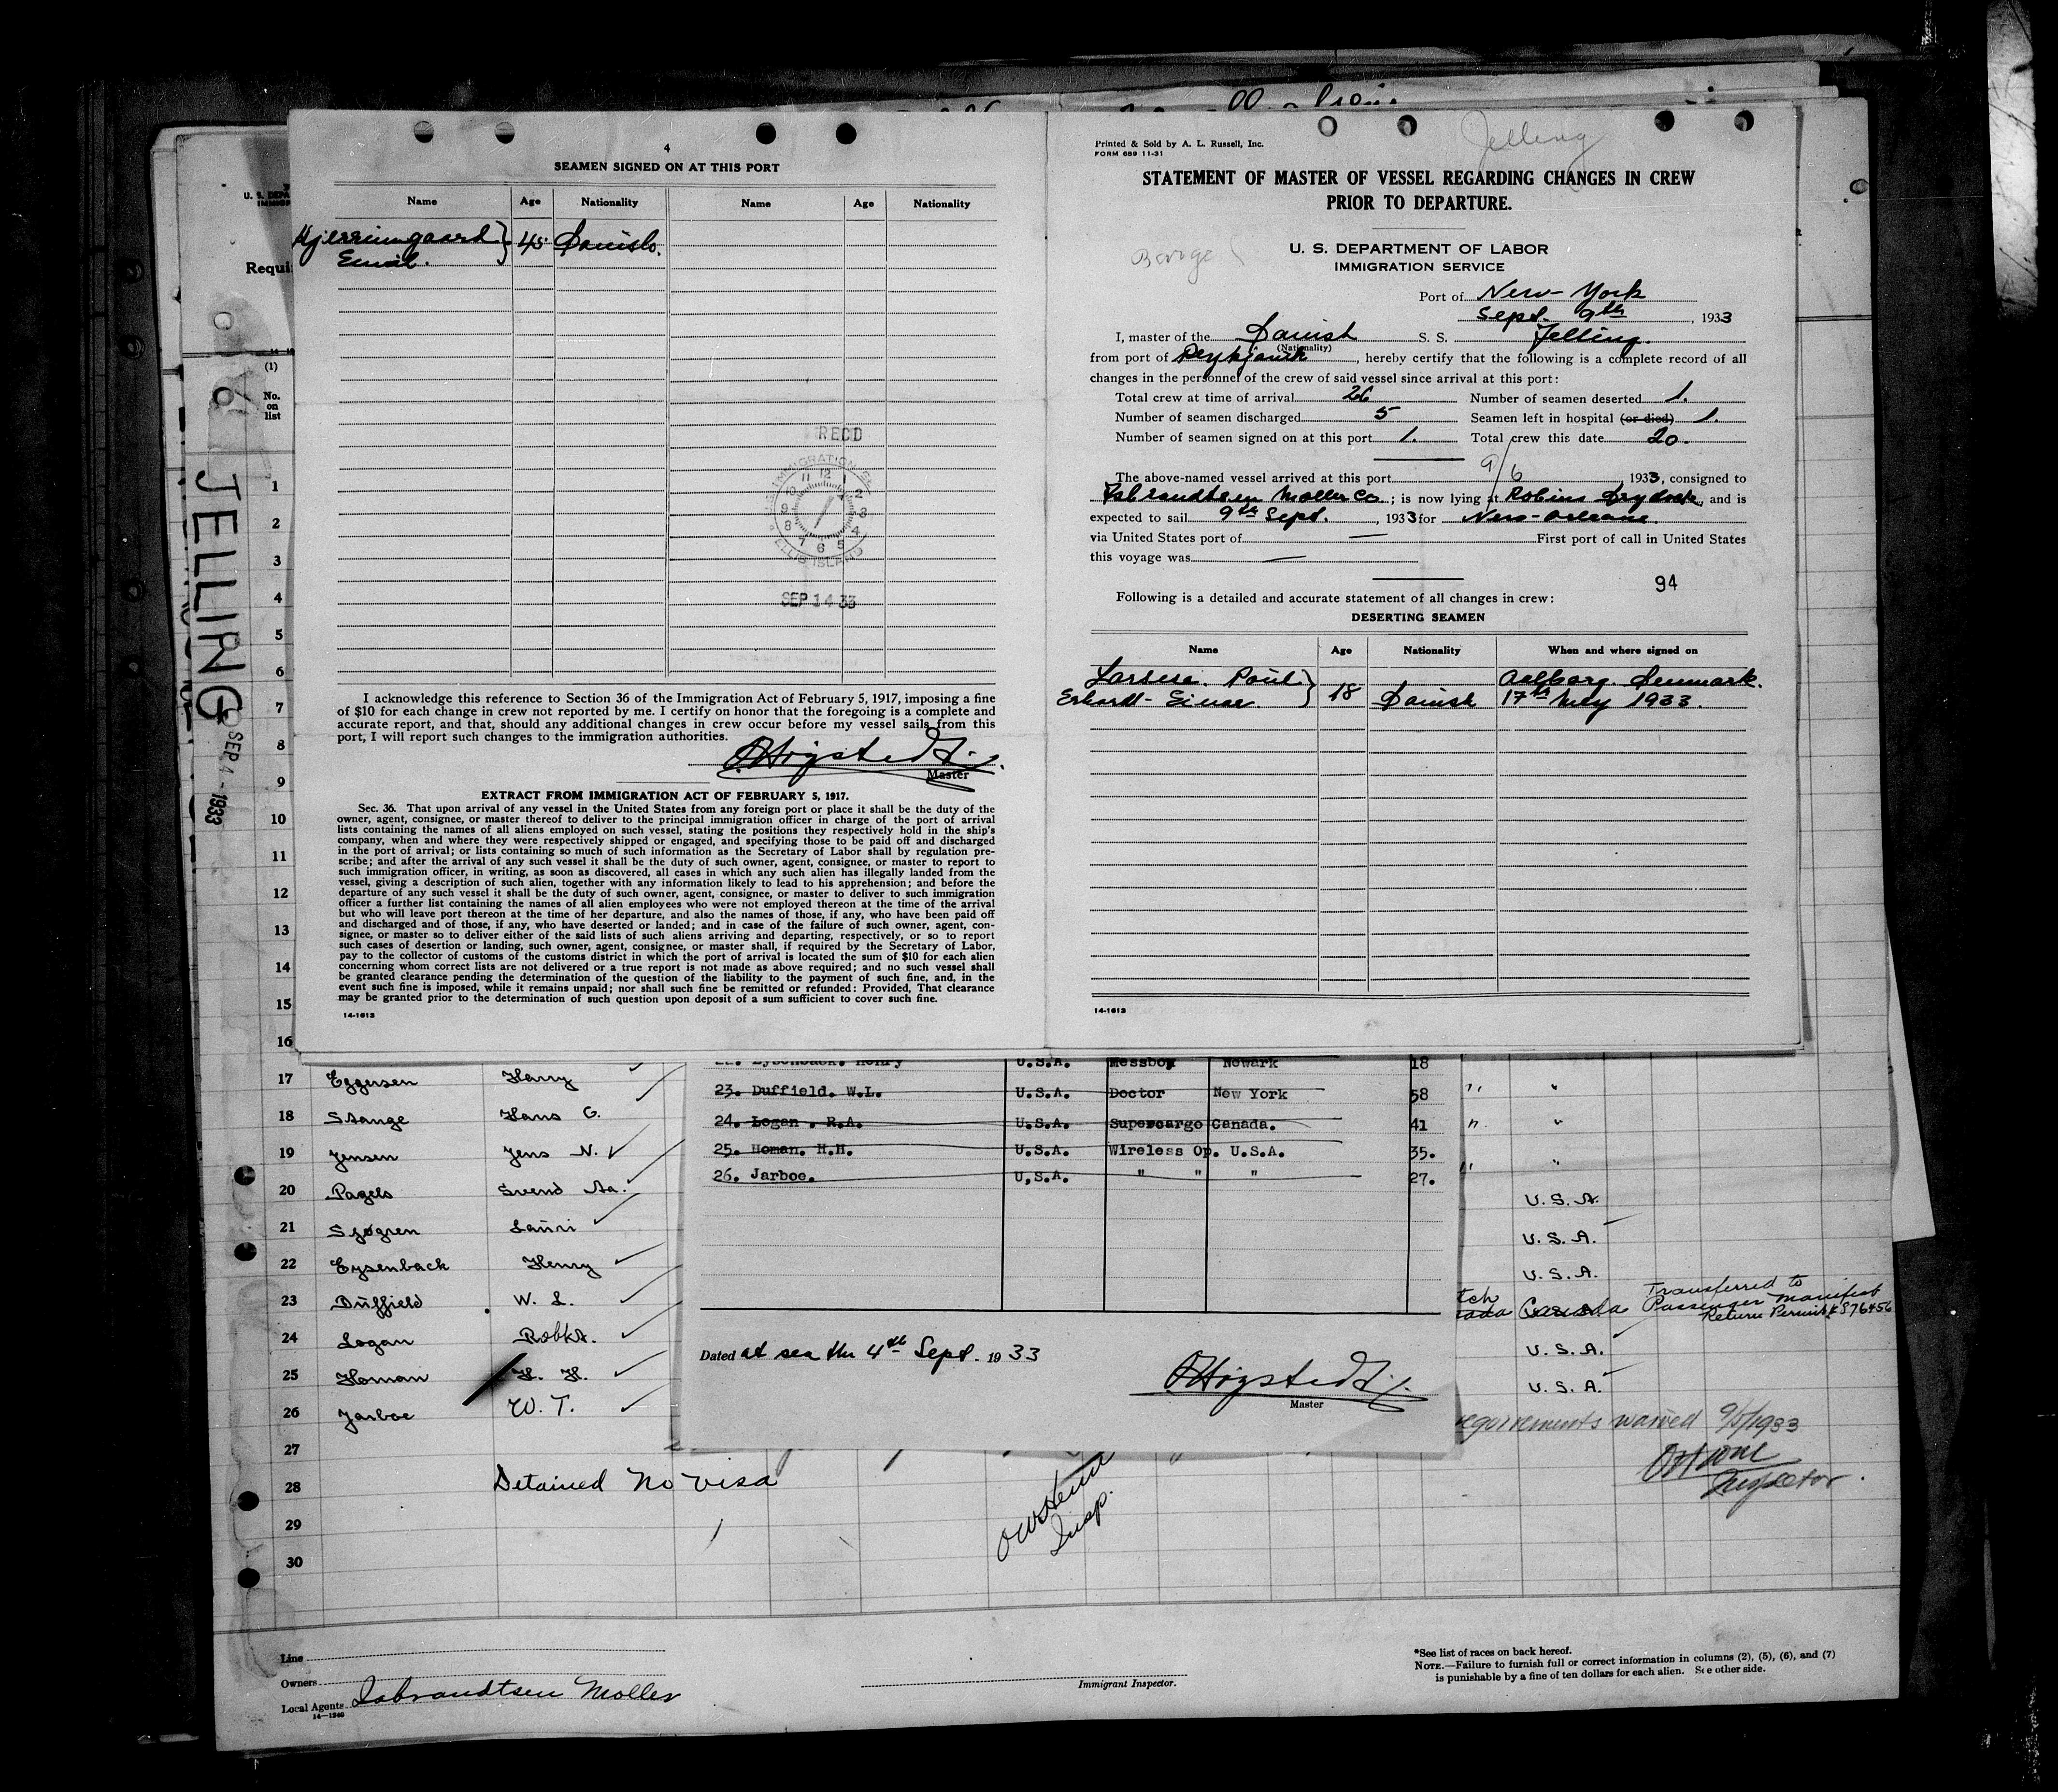 4
SEAMEN SIGNED ON AT THIS PORT
Name Age Nationality Name Age Nationality
Hjerrimgaard } 45 Danish.
Emil.
RECD
U.S. IMMIGRATION
ELLIS ISLAND
SEP 14 33
I acknowledge this reference to Section 36 of the Immigration Act of February 5, 1917, imposing a fine
of $10 for each change in crew not reported by me. I certify on honor that the foregoing is a complete and
accurate report, and that, should any additional changes in crew occur before my vessel sails from this
port, I will report such changes to the immigration authorities.
Master
EXTRACT FROM IMMIGRATION ACT OF FEBRUARY 5, 1917.
Sec. 36. That upon arrival of any vessel in the United States from any foreign port or place it shall be the duty of the
owner, agent, consignee, or master thereof to deliver to the principal immigration officer in charge of the port of arrival
lists containing the names of all aliens employed on such vessel, stating the positions they respectively hold in the ship's
company, when and where they were respectively shipped or engaged, and specifying those to be paid off and discharged
in the port of arrival; or lists containing so much of such information as the Secretary of Labor shall by regulation pre-
scribe; and after the arrival of any such vessel it shall be the duty of such owner, agent, consignee, or master to report to
such immigration officer, in writing, as soon as discovered, all cases in which any such alien has illegally landed from the
vessel, giving a description of such alien, together with any information likely to lead to his apprehension; and before the
departure of any such vessel it shall be the duty of such owner, agent, consignee, or master to deliver to such immigration
officer a further list containing the names of all alien employees who were not employed thereon at the time of the arrival
but who will leave port thereon at the time of her departure, and also the names of those, if any, who have been paid off
and discharged and of those, if any, who have deserted or landed; and in case of the failure of such owner, agent, con-
signee, or master so to deliver either of the said lists of such aliens arriving and departing, respectively, or so to report
such cases of desertion or landing, such owner, agent, consignee, or master shall, if required by the Secretary of Labor,
pay to the collector of customs of the customs district in which the port of arrival is located the sum of $10 for each alien
concerning whom correct lists are not delivered or a true report is not made as above required; and no such vessel shall
be granted clearance pending the determination of the question of the liability to the payment of such fine, and, in the
event such fine is imposed, while it remains unpaid; nor shall such fine be remitted or refunded: Provided, That clearance
may be granted prior to the determination of such question upon deposit of a sum sufficient to cover such fine.
14-1613
Jelling
Printed & Sold by A. L. Russell, Inc.
FORM 689 11-31
STATEMENT OF MASTER OF VESSEL REGARDING CHANGES IN CREW
PRIOR TO DEPARTURE.
U. S. DEPARTMENT OF LABOR
IMMIGRATION SERVICE
Port of New-York
Sept. 9th, 1933
I, master of the Danish S. S. Jelling.
(Nationality)
from port of Reykjavik, hereby certify that the following is a complete record of all
changes in the personnel of the crew of said vessel since arrival at this port:
Total crew at time of arrival 26 Number of seamen deserted 1.
Number of seamen discharged 5 Seamen left in hospital (or died) 1.
Number of seamen signed on at this port 1. Total crew this date 20.
The above-named vessel arrived at this port 9/6 1933, consigned to
Isbrandtsen Moller Co.; is now lying at Robins Drydock, and is
expected to sail 9th Sept., 1933 for New-Orleans.
via United States port of — First port of call in United States
this voyage was —
94
Following is a detailed and accurate statement of all changes in crew:
DESERTING SEAMEN
Name Age Nationality When and where signed on
Larsen. Paul } 18 Danish Aalborg. Denmark.
Erhardt-Einar. 17th July 1933.
14-1613
Requi
(1)
No.
on
list
JELLING
SEP 4-1933
1
2
3
4
5
6
7
8
9
10
11
12
13
14
15
16
17 Eggersen Harry
18 Stange Hans G.
19 Jensen Jens N.
20 Pagels Svend Aa.
21 Sjøgren Lauri
22 Eysenback Henry
23 Duffield W. L.
24 Logan Robt A.
25 Homan H. H.
26 Jarboe W. T.
27
28 Detained No visa
29
30
22. Eysenback. Henry U.S.A. Messboy Newark 18
23. Duffield. W.L. U.S.A. Doctor New York 58
24. Logan . R.A. U.S.A. Supercargo Canada. 41
25. Homan. H.H. U.S.A. Wireless Op. U.S.A. 35.
26. Jarboe. U.S.A. " " " 27.
Dated at sea the 4th Sept. 1933
Master
U.S.A.
U.S.A.
U.S.A.
Canada Transferred to
Passenger manifest
Return Permit # 876456
U.S.A.
U.S.A.
waived 9/5/1933
Inspector.
Insp.
Line
Owners
Local Agents Isbrandtsen Moller
14-1240
Immigrant Inspector.
*See list of races on back hereof.
NOTE.—Failure to furnish full or correct information in columns (2), (5), (6), and (7)
is punishable by a fine of ten dollars for each alien. See other side.